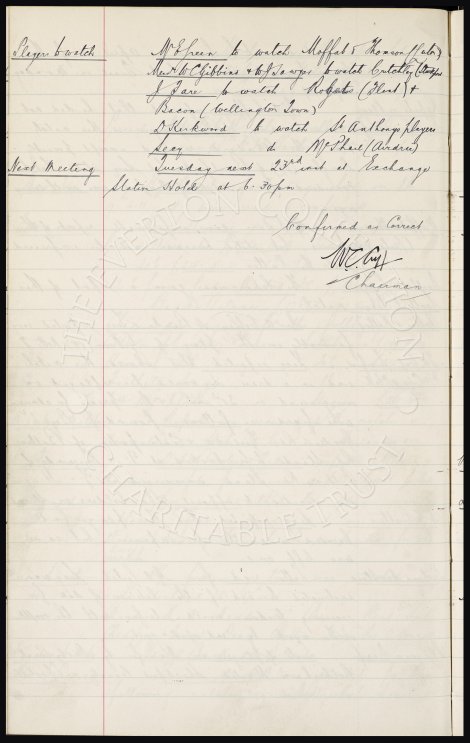 Players to watch Mr E Green to watch Moffat & Thomson (Luton)
Messrs W C Gibbins & W J Sawyer to watch Critchley (Stockport
J Fare to watch Roberts (Flint) &
Bacon (Wellington Town)
D Kirkwood to watch St Anthonys players
Secy do McPhail (Airdrie)
Next Meeting Tuesday next 23rd inst at Exchange
Station Hotel at 6.30pm
Confirmed as Correct
W.C. Cuff
Chairman
© THE EVERTON CO
CHARITABLE TRUST